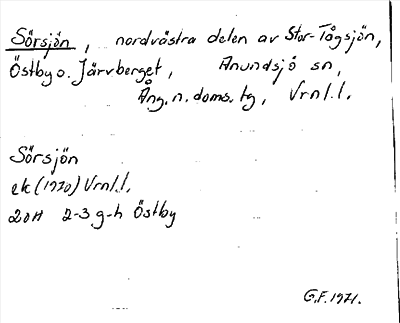 Sörsjön, nordvästra delen av Stor-Tågsjön,
Östby o. Järvberget, Anundsjö sn,
Ång. n. doms. tg, Vrnl.l.
Sörsjön
ek (1970) Vrnl.l.
20H 2-3 g-h Östby
G.F. 1971.